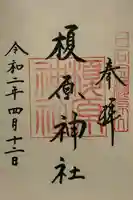 奉拝
榎原神社
令和二年四月十二日